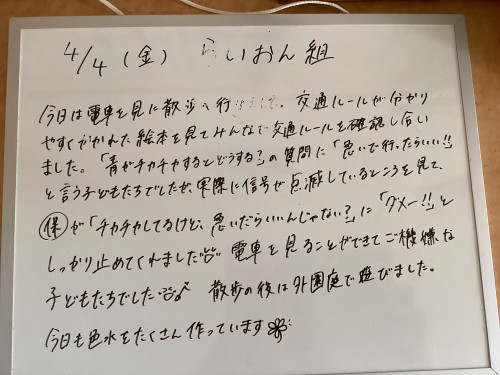 4/4 (金) らいおん組
今日は電車を見に散歩へ行きました。交通ルールが分かり
やすくかかれた絵本を見てみんなで交通ルールを確認し合い
ました。「青がチカチカするとどうする?」の質問に「急いで行ったらいい!!」
と言う子どもたちでしたが、実際に信号が点滅しているところを見て、
保が「チカチカしてるけど、急いだらいいんじゃない?」に「ダメー!!」と
しっかり止めてくれました 電車を見ることができてご機嫌な
子どもたちでした 散歩の後は外園庭で遊びました。
今日も色水をたくさん作っています